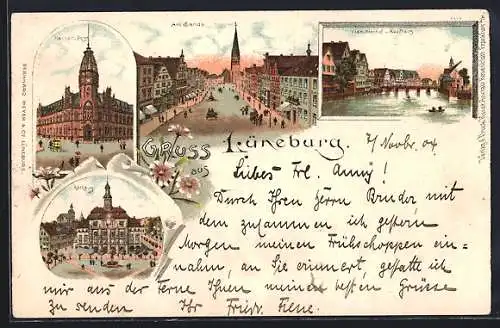 Kaiserl. Post
Am Sande
Gruss
aus
Lüneburg.
7/Novbr. 04
Liebes Frl. Anny!
Durch Ihren Herrn Bruder mit
dem zusammen ich gestern
Morgen meinen Frühschoppen ein-
nahm, an Sie erinnert, gestatte ich
mir aus der Ferne Ihnen meine besten Grüsse
zu senden Ihr Friedr.